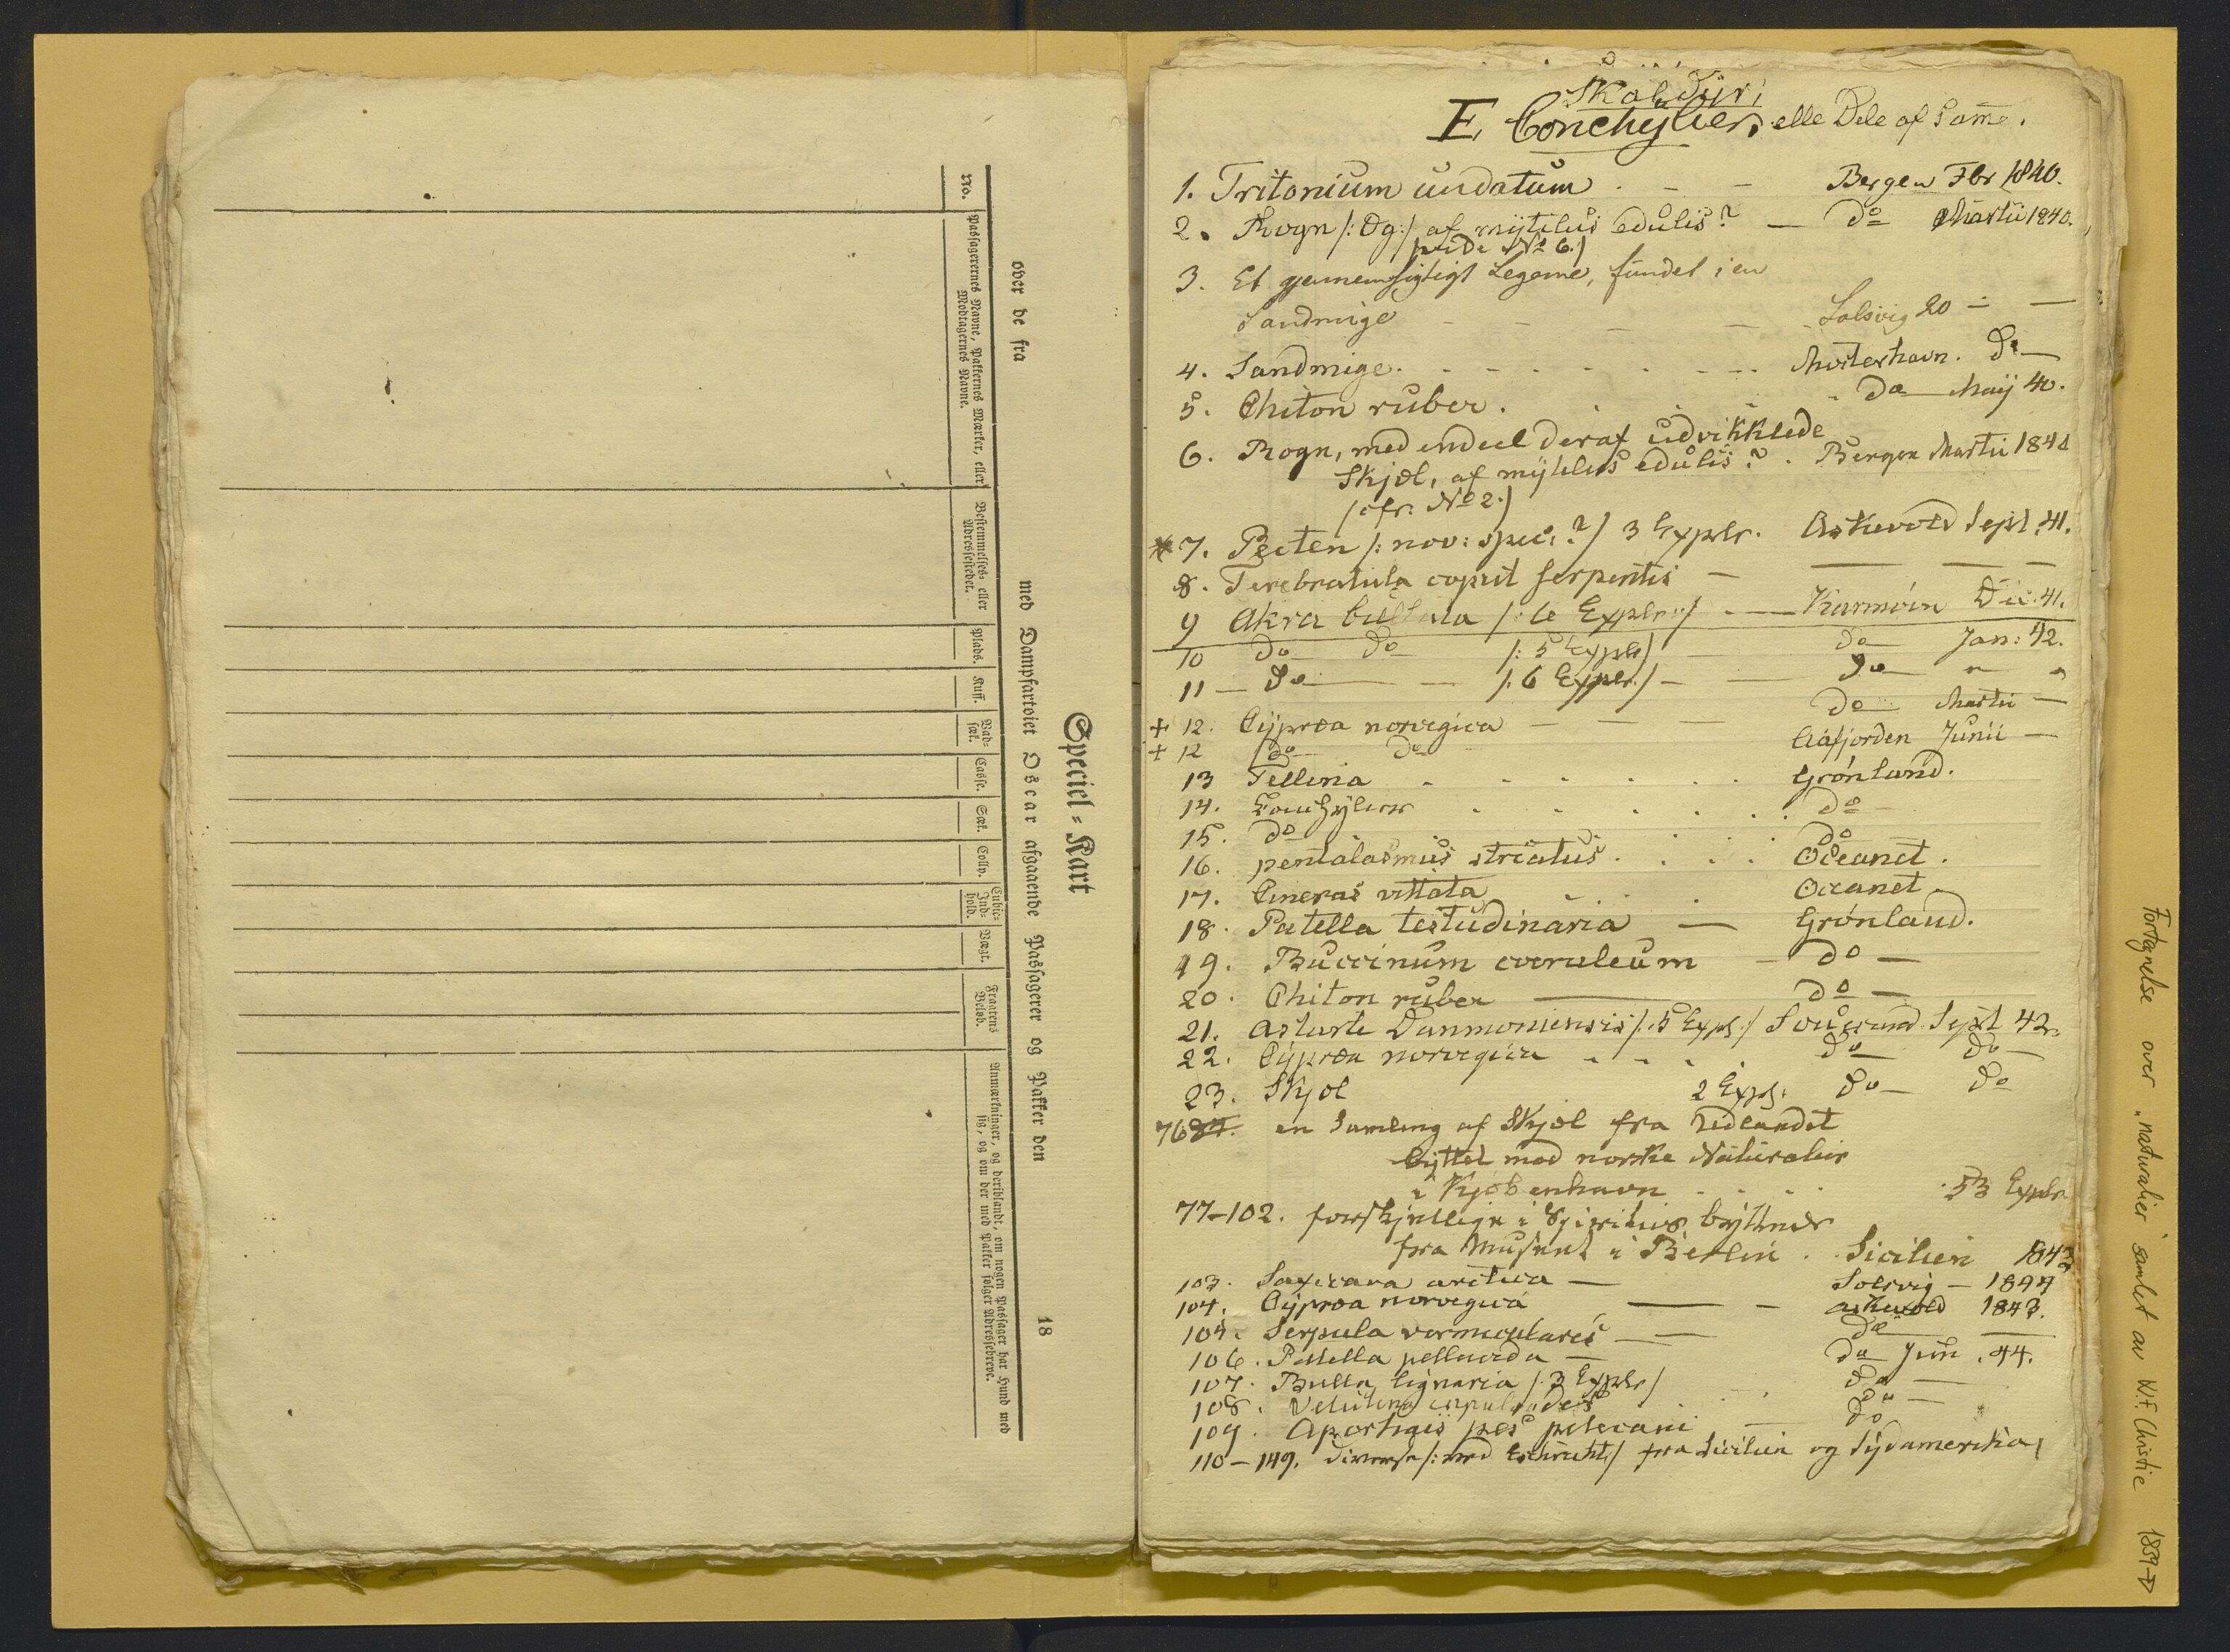 Speciel-Kart
over de fra med Dampfartøiet Oscar afgaaende Passagerer og Pakker den 18
No.
Passagerernes Navne, Pakkernes Mærker, eller
Modtagernes Navne.
Bestemmelses- eller
Adressestedet.
Plads.
Kuff.
Vad-
sæk.
Casse.
Sæk.
Colly.
Cubic-
Ind-
hold.
Vægt.
Fragtens
Beløb.
Anmærkninger, og deriblandt, om nogen Passager har Hund med
sig, og om der med Pakker følger Adressebreve.
Skaldyr,
E, Conchylier, elle Dele af Samē.
1. Tritonium undatum - - - Bergen Fbr 1840.
2. Rogn /: Æg :/ af mytilus edulis? — do Martii 1840.
/vide No 6./
3. Et gjennemsigtigt Legeme, fundet i en
Sandmige - - - - Solsvig 20 - —
4. Sandmige. - - - - Mosterhavn. do —
5. Chiton ruber. . . . . do — Maij 40.
6. Rogn, med endeel deraf udvikklede
Skjæl, af mytilus edulis? . Bergen Martii 1840
/cfr. No 2./
* 7. Pecten /: nov: spec:?/ 3 Explr. Askevold Sept. 41.
8. Terebratula caput serpentis — — — —
9 Akra bullata /: 6 Explr :/ - — Karmöen Dec. 41.
10 do do /: 5 Explr/ — do Jan: 42.
11 — do — — /: 6 Explr./ — — do " "
+ 12. Cypræa norvegica — — do Martii —
+ 12 do do - Aafjorden Junii —
13 Tellina . . . . . Grönland.
14. Conchylier . . . . . do
15. do . . . . do
16. pentalasmus striatus. . . . Oceanet.
17. Cineras vittata . . . Oceanet
18. Patella testudinaria — Grönland.
19. Buccinum coeruleum — do —
20. Chiton ruber — do —
21. Astarte Danmoniensis /: 5 Expl:/ Sept 42.
22. Cypræa norvegica - - - . do do —
23. Skjæl 2 Expl: do — do
76 24. en Samling af Skjæl fra Udlandet
byttet mod norske Naturalier
i Kjöbenhavn . . . . 53 Explr.
77-102. forskjellige i Spiritus, byttede
fra Museet i Berlin . . Sicilien 1843
103. Saxicava arctica — Solsvig — 1844
104. Cypræa norvegica — — Askevold 1843.
105. Serpula vermicularis — — do —
106. Patella pellucida — do Jun. 44.
107. Bulla lignaria /: 3 Explr/ do —
108. Velutina . . do —
109. Aporhais pes pelecani — do
110 — 149. diverse /: med Eschricht / fra Sicilien og Sydamerika,
Fortegnelse over "naturalier" samlet av W.F. Christie 1839→